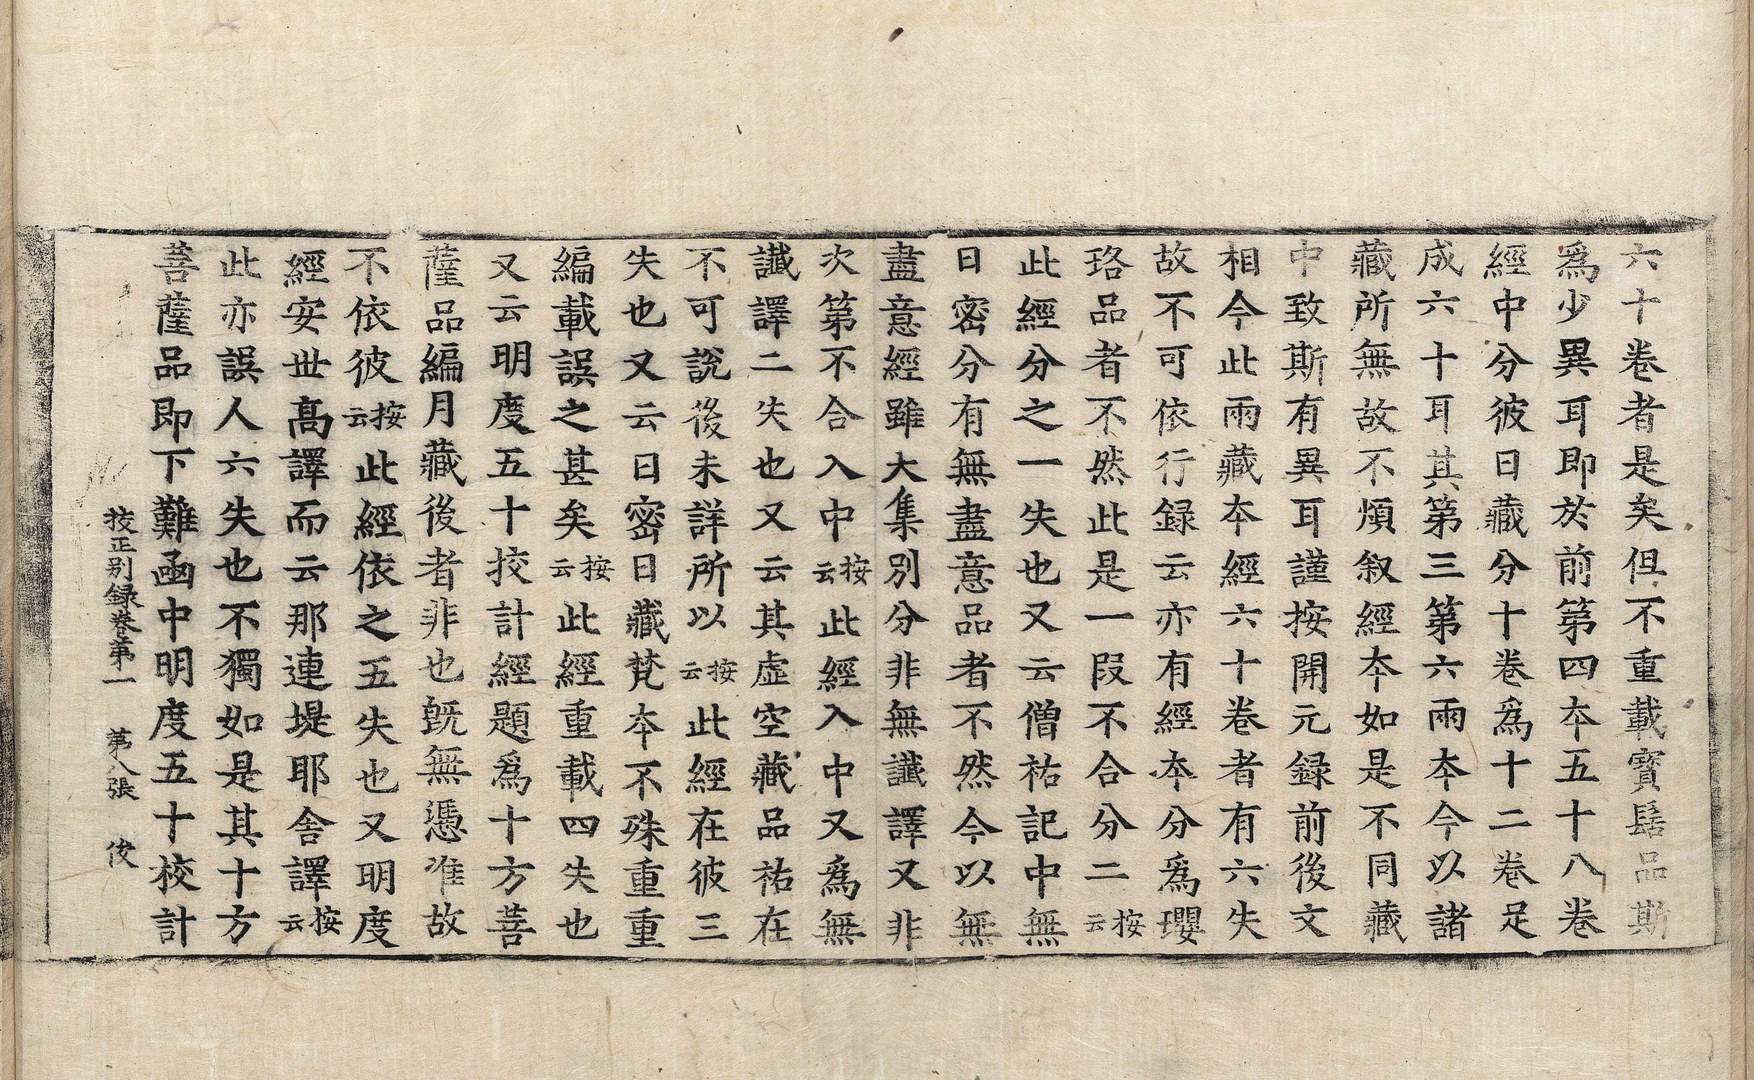 六十卷者是矣但不重載寳髻品斯
爲少異耳即於前第四夲五十八卷
經中分彼日藏分十卷爲十二卷足
成六十耳其第三第六兩夲今以諸
藏所無故不煩叙經夲如是不同藏
中致斯有異耳謹按開元録前後文
相今此兩藏夲經六十卷者有六失
故不可依行録云亦有經夲分爲瓔
珞品者不然此是一段不合分二按云
此經分之一失也又云僧祐記中無
日密分有無盡意品者不然今以無
盡意經雖大集別分非無讖譯又非
次第不合入中按云此經入中又爲無
讖譯二失也又云其虛空藏品祐在
不可說後未詳所以按云此經在彼三
失也又云日密日藏梵夲不殊重重
編載誤之甚矣按云此經重載四失也
又云明度五十挍計經題爲十方菩
薩品編月藏後者非也旣無憑准故
不依彼按云此經依之五失也又明度
經安世髙譯而云那連堤耶舎譯按云
此亦誤人六失也不獨如是其十方
菩薩品即下難凾中明度五十校計
挍正别録卷第一　第八張　俊